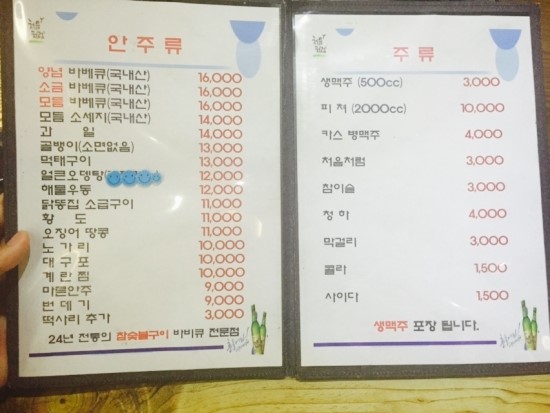 안주류
양념 바베큐(국내산) 16,000
소금 바베큐(국내산) 16,000
모듬 바베큐(국내산) 16,000
모듬 소세지(국내산) 14,000
과 일 14,000
골뱅이(소면없음) 13,000
먹태구이 13,000
얼큰오뎅탕 12,000
해물우동 12,000
닭똥집 소금구이 11,000
황 도 11,000
오징어 땅콩 11,000
노 가 리 10,000
대 구 포 10,000
계 란 찜 10,000
마른안주 9,000
번 데 기 9,000
떡사리 추가 3,000
24년 전통의 참숯불구이 바비큐 전문점
주류
생맥주 (500cc) 3,000
피 쳐 (2000cc) 10,000
카스 병맥주 4,000
처음처럼 3,000
참이슬 3,000
청 하 4,000
막걸리 3,000
콜라 1,500
사이다 1,500
생맥주 포장 됩니다.